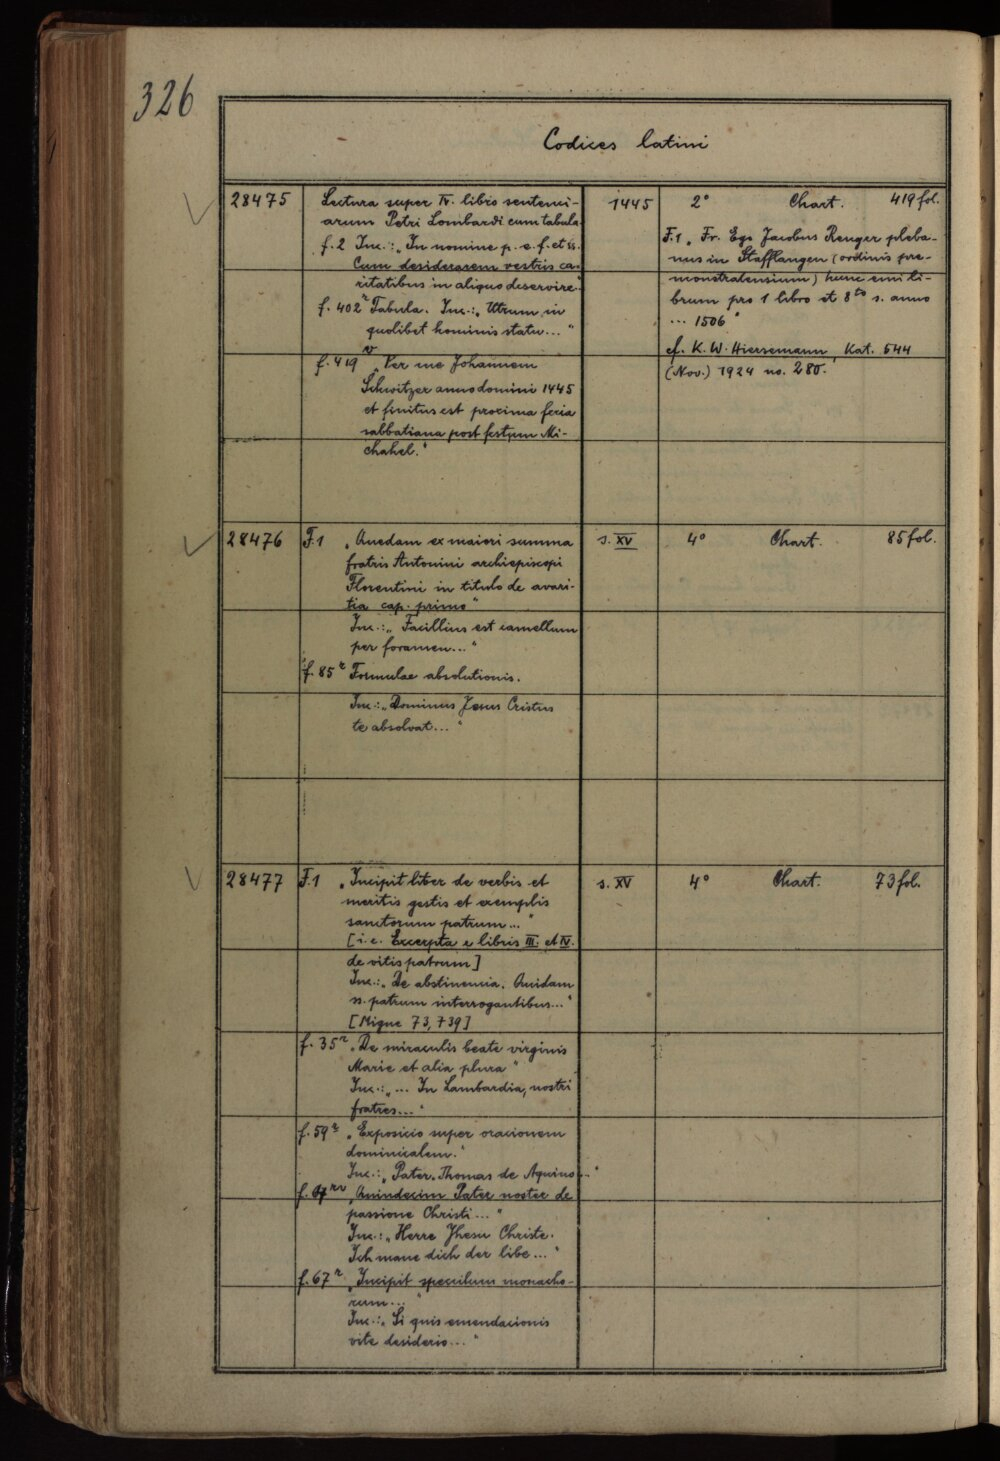 326
Codices latini
28475
Lectura super IV. libro sentenci-
arum Petri Lombardi cum tabula
f. 2 Inc.: „In nomine p. e. f. et ss.
Cum desiderarem vestris ca-
ritatibus in aliquo deservire.“
f. 402r Tabula. Inc.: „Utrum in
quolibet hominis statu..."
f. 419v „Per me Johannem
Schwitzer anno domini 1445
et finitus est proxima feria
sabbatiana post festum Mi-
chahel.“
1445
2° Chart. 419 fol.
F. 1 „Fr. Ego Jacobus Renger pleba-
nus in Stafflangen (ordinis pre-
monstratensium) hunc emi li-
brum pro 1 libro et 8to s. anno
... 1506“
cf. K. W. Hiersemann, Kat. 544
(Nov.) 1924 no. 280.
28476
F. 1 „Quedam ex maiori summa
fratris Antonini archiepiscopi
Florentini in titulo de avari-
tia cap. primo“
Inc.: „Facillius est camellum
per foramen..."
f. 85r Formulae absolutionis.
Inc.: „Dominus Jesus Cristus
te absolvat..."
s. XV
4° Chart. 85 fol.
28477
F. 1 „Incipit liber de verbis et
meritis gestis et exemplis
sanctorum patrum..."
[i. e. Excerpta e libris III. et IV.
de vitis patrum]
Inc.: „De abstinencia. Quidam
ss. patrum interrogantibus..."
[Migne 73, 739]
f. 35r „De miraculis beate virginis
Marie et alia plura“
Inc.: „... In Lambardia, nostri
fratres..."
f. 59r „Exposicio super oracionem
dominicalem.“
Inc.: „Pater. Thomas de Aquino..."
f. 67rv „Quindecim Pater noster de
passione Christi..."
Inc.: „Herre Jhesu Christe.
Ich mane dich der libe..."
f. 67r „Incipit speculum monacho-
rum..."
Inc.: „Si quis emendacionis
vite desiderio..."
s. XV
4° Chart. 73 fol.